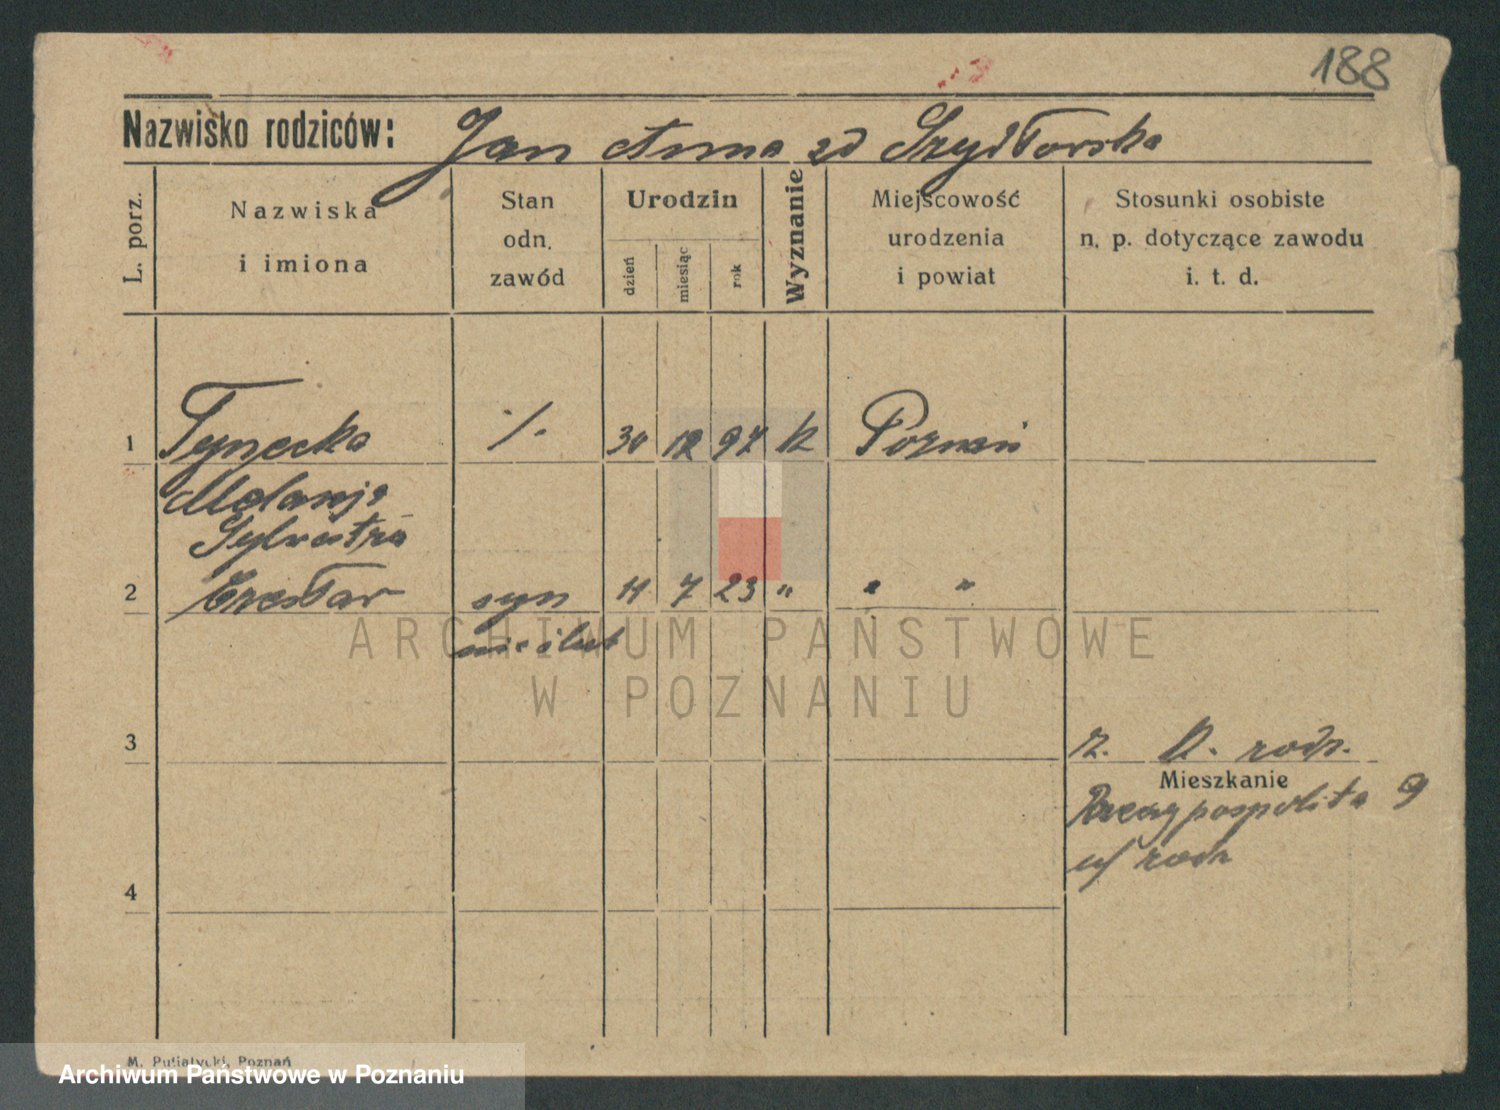 188
Nazwisko rodziców: Jan Anna zd Szydłowska
L. porz.
Nazwiska
i imiona
Stan
odn.
zawód
Urodzin
dzień
miesiąc
rok
Wyznanie
Miejscowość
urodzenia
i powiat
Stosunki osobiste
n. p. dotyczące zawodu
i. t. d.
1 Tynecka ·/. 30 12 97 k Poznań
Melanja
Sylwestra
2 Czesław syn 11 7 23 " " "
nieślub
ARCHIWUM PAŃSTWOWE
W POZNANIU
3 k. rodz.
Mieszkanie
9
u/ rodz
4
M. Putiatycki, Poznań
Archiwum Państwowe w Poznaniu